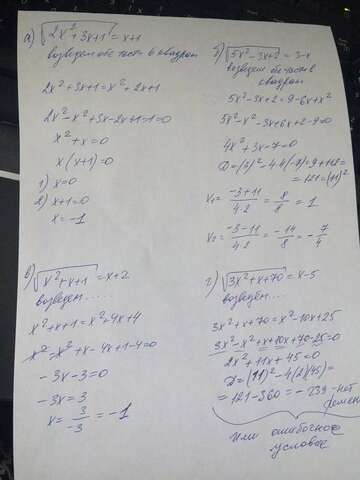 а) √2x²+3x+1 = x+1
возведем обе части в квадрат
2x²+3x+1=x²+2x+1
2x²-x²+3x-2x+1-1=0
x²+x=0
x(x+1)=0
1) x=0
2) x+1=0
x=-1
б) √5x²-3x+2 = 3-x
возведем об части в
квадрат
5x²-3x+2=9-6x+x²
5x²-x²-3x+6x+2-9=0
4x²+3x-7=0
D=(3)²-4·4(-7)=9+112=
=121=(11)²
x₁= -3+11/4·2 = 8/8 = 1
x₂= -3-11/4·2 = -14/8 = -7/4
в) √x²+x+1 = x+2
возведем .....
x²+x+1=x²+4x+4
x²-x²+x-4x+1-4=0
-3x-3=0
-3x=3
x= 3/-3 = -1
г) √3x²+x+70 = x-5
возведём...
3x²+x+70=x²-10x+25
3x²-x²+x+10x+70-25=0
2x²+11x+45=0
D=(11)²-4(2)(45)=
=121-360=-239-нет
решен
или ошибочное
условие